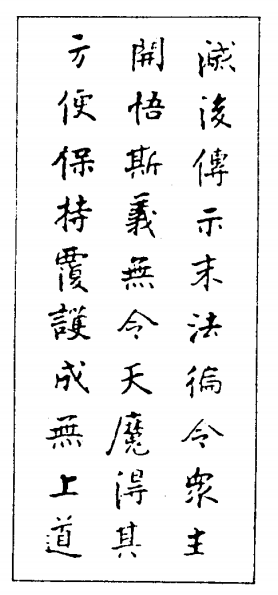 滅後傳示末法徧令衆生
開悟斯義無令天魔得其
方便保持覆護成無上道